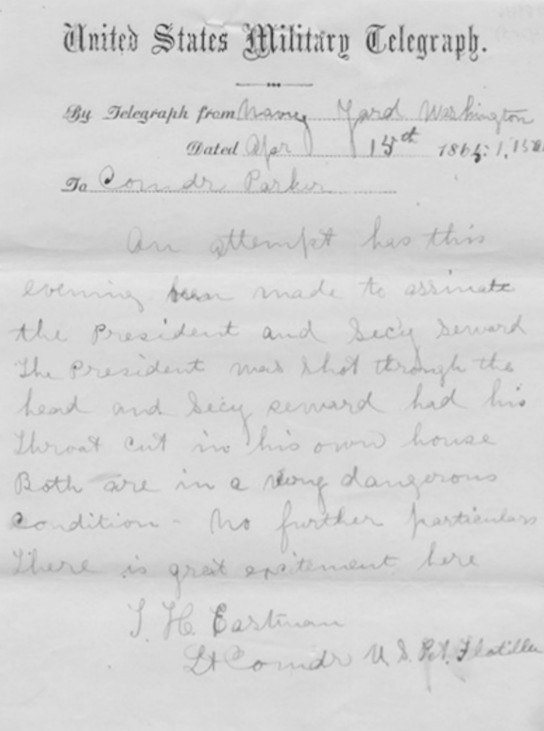 United States Military Telegraph.
By Telegraph from Navy Yard Washington
Dated Apr 15th 1865: 1,15
To Comdr Parker
An attempt has this
evening been made to assinate
the President and Secy Seward
The President was shot through the
head and Secy seward had his
Throat cut in his own house
Both are in a very dangerous
Condition - No further particulars
There is great excitement here
T. H. Eastman
Lt Comdr U. S. Pot. Flotilla